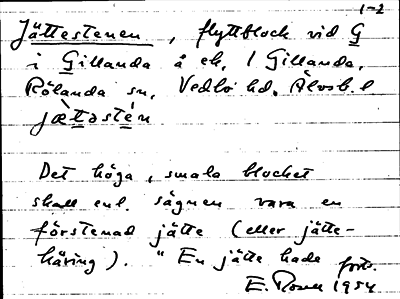 1-2
Jättestenen, flyttblock vid G
i Gillanda å ek. 1 Gillanda,
Rölanda sn, Vedbo hd. Älvsb. l
jæ̀təstén
Det höga, smala blocket
skall enl. sägnen vara en
förstenad jätte (eller jätte-
häring). "En jätte hade
forts.
E. 1954